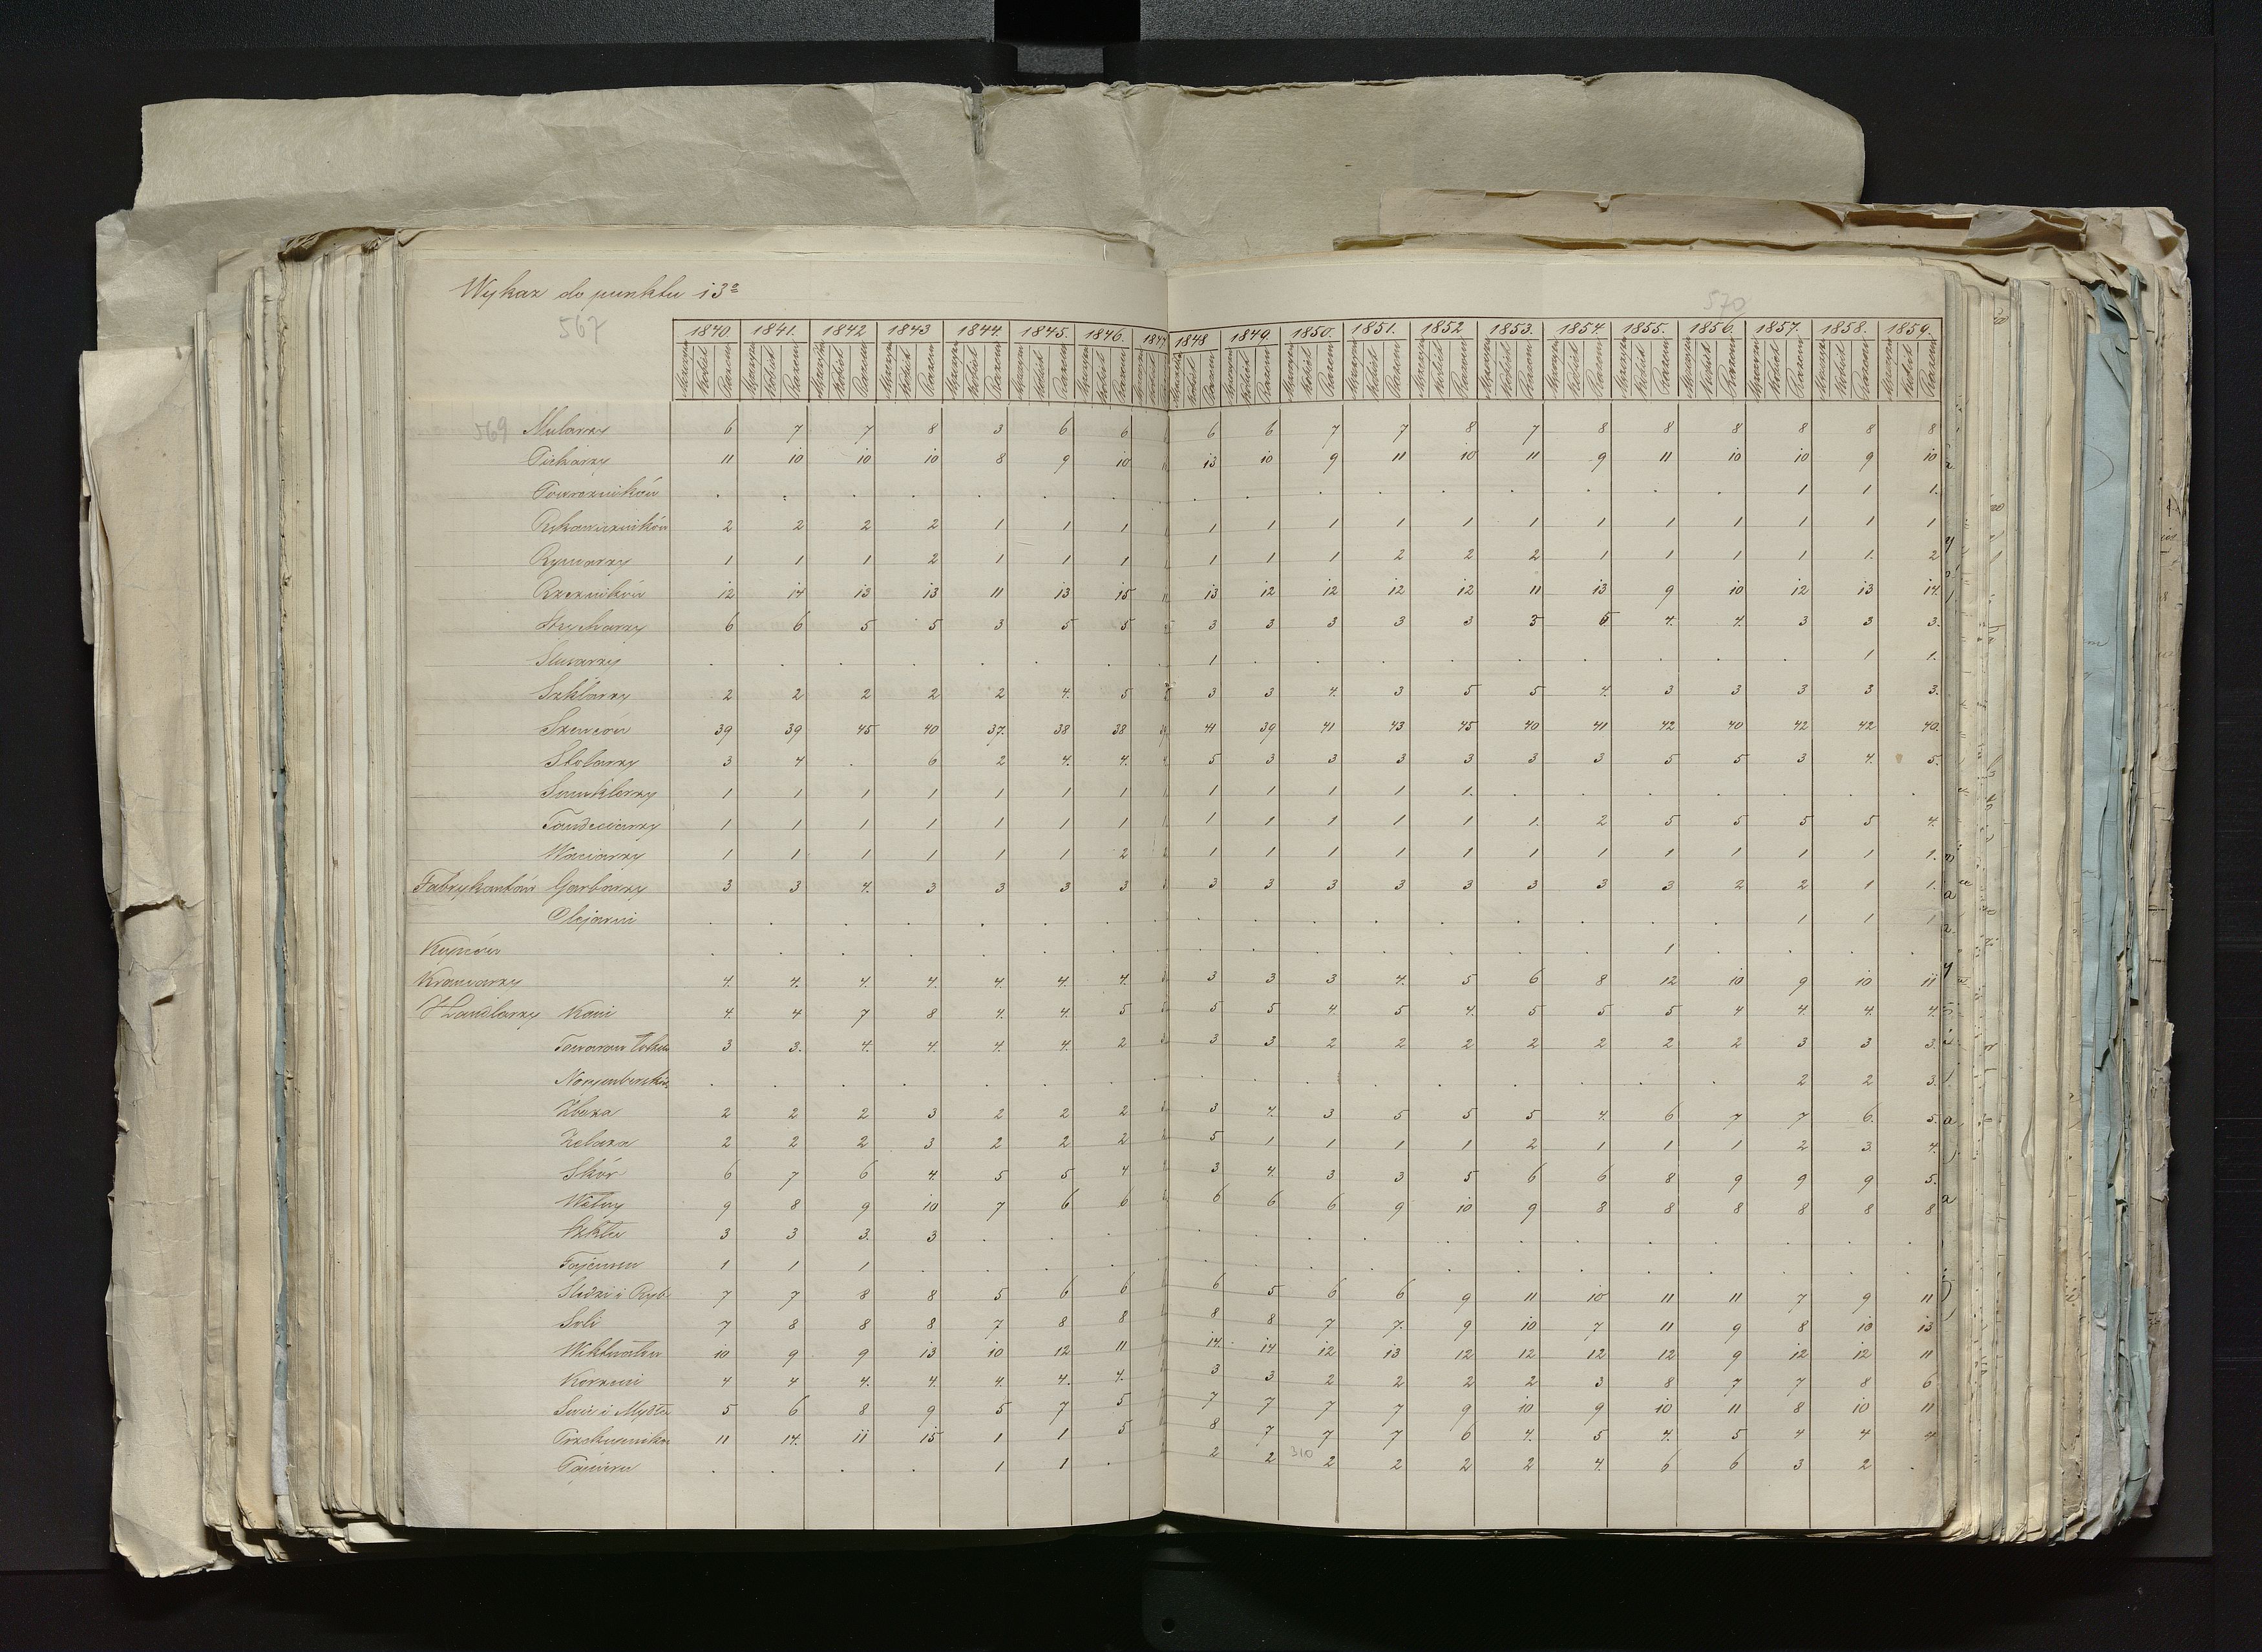 Wykaz do punktu 13º
567 570
1840. 1841. 1842 1843 1844. 1845. 1846. 1847 1848 1849. 1850. 1851. 1852 1853. 1854. 1855. 1856. 1857. 1858. 1859.
Mężczyzn Kobiet Razem
569 Mularzy 6 7 7 8 3 6 6 6 6 7 7 8 7 8 8 8 8 8 8
Piekarzy 11 10 10 10 8 9 10 13 10 9 11 10 11 9 11 10 10 9 10
Powroźników . . . . . . . . . . . . . . . . 1 1 1.
Rękawiczników 2 2 2 2 1 1 1 1 1 1 1 1 1 1 1 1 1 1 1
Rymarzy 1 1 1 2 1 1 1 1 1 1 2 2 2 1 1 1 1 1. 2
Rzeźników 12 14 13 13 11 13 15 13 12 12 12 12 11 13 9 10 12 13 14.
Strycharzy 6 6 5 5 3 5 5 3 3 3 3 3 3 5 4. 4. 3 3 3.
Ślusarzy . . . . . . . 1 . . . . . . . . . 1 1.
Szklarzy 2 2 2 2 2 4. 5 3 3 4. 3 5 5 4. 3 3 3 3 3.
Szewców 39 39 45 40 37. 38 38 41 39 41 43 45 40 41 42 40 42 42 40.
Stolarzy 3 4 . 6 2 4. 4. 5 3 3 3 3 3 3 5 5 3 4. 5.
Szmuklerzy 1 1 1 1 1 1 1 1 1 1 1 1. . . . . . . .
Tandeciarzy 1 1 1 1 1 1 1 1 1 1 1 1 1. 2 5 5 5 5 4.
Waciarzy 1 1 1 1 1 1 2 1 1 1 1 1 1 1 1 1 1 1 1.
Fabrykantów Garbarzy 3 3 4. 3 3 3 3 3 3 3 3 3 3 3 3 2 2 1 1.
Olejarni . . . . . . . . . . . . . . . . 1 1 1
Kupców . . . . . . . . . . . . . . 1 . . . .
Kramarzy 4. 4. 4. 4. 4. 4. 4. 3 3 3 4. 5 6 8 12 10 9 10 11
Handlarzy Koni 4. 4 7 8 4. 4. 5 5 5 4 5 4. 5 5 5 4 4. 4. 4.
Towarów 3 3. 4. 4. 4. 4. 2 3 3 2 2 2 2 2 2 2 3 3 3.
Norymberskich . . . . . . . . . . . . . . . . 2 2 3.
Zboża 2 2 2 3 2 2 2 3 4. 3 5 5 5 4. 6 7 7 6. 5.
Żelaza 2 2 2 3 2 2 2 5 1 1 1 1 2 1 1 1 2 3. 4.
Skór 6 7 6 4. 5 5 4 3 4. 3 3 5 6 6 8 9 9 9 5.
Wełny 9 8 9 10 7 6 6 6 6 6 9 10 9 8 8 8 8 8 8
Szkła 3 3 3. 3 . . . . . . . . . . . . . . .
Fajansu 1 1 1 . . . . . . . . . . . . . . . .
Śledzi i Ryb 7 7 8 8 5 6 6 6 5 6 6 9 11 10 11 11 7 9 11
Soli 7 8 8 8 7 8 8 8 8 7 7. 9 10 7 11 9 8 10 13
Wiktuałów 10 9 9 13 10 12 11 14. 14 12 13 12 12 12 12 9 12 12 11
Korzeni 4 4 4. 4. 4. 4. 4. 3 3 2 2 2 2 3 8 7 7 8 6
Świc i Mydła 5 6 8 9 5 7 5 7 7 7 7 9 10 9 10 11 8 10 11
Przekupników 11 14. 11 15 1 1 5 8 7 7 7 6 4. 5 4. 5 4 4 4
Papieru . . . . 1 1 . 2 2 310 2 2 2 2 4. 6 6 3 2 .